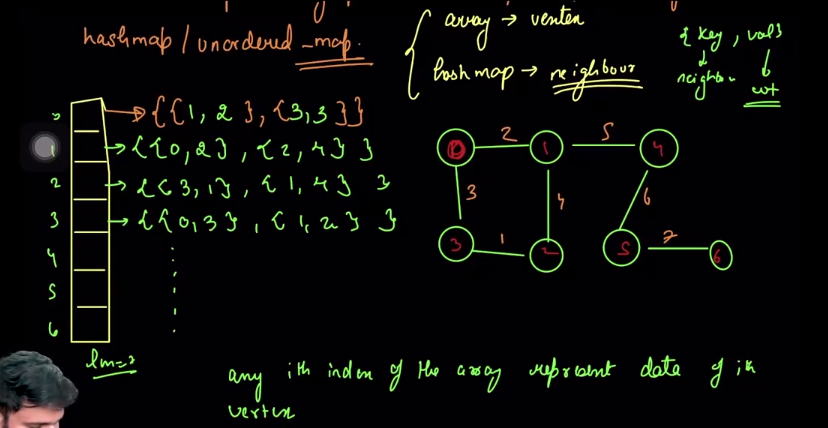 hashmap / unordered_map.
array → verten
hashmap → neighbour
{ key , val }
neighbou. wt
0 → {{1, 2}, {3,3}}
1 → {{0,2}, {2,4} }
2 → {{3,1}, {1,4} }
3 → {{0,3}, {1,2} }
4
5
6
0 2 1 5 4
3 4 6
3 1 2 5 7 6
any ith index of the array represent data of ith
vertex